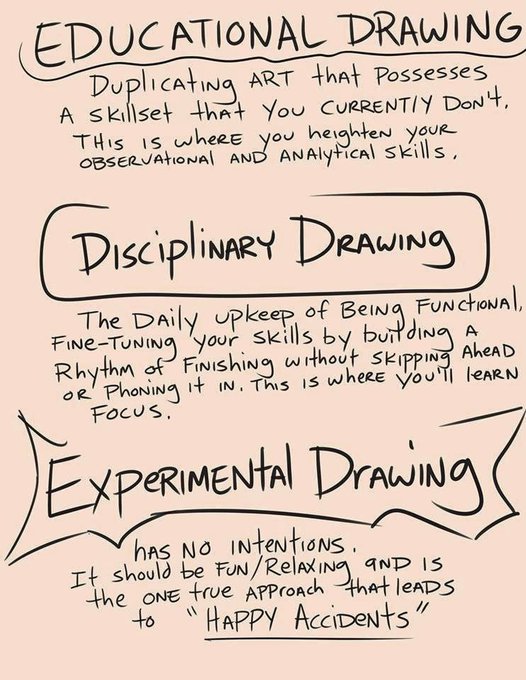 EDUCATIONAL DRAWING
Duplicating ART that Possesses
A skillset that You CURRENTLY Don't.
THIS is where you heighten your
OBSERVATIONAL AND ANAlytical skills.
Disciplinary Drawing
The Daily upkeep of Being Functional,
Fine-Tuning your skills by building A
Rhythm of Finishing without skipping Ahead
or Phoning it in. This is where you'll learn
Focus.
Experimental Drawing
has no intentions.
It should be Fun/Relaxing and is
the one true approach that leads
to "Happy Accidents"